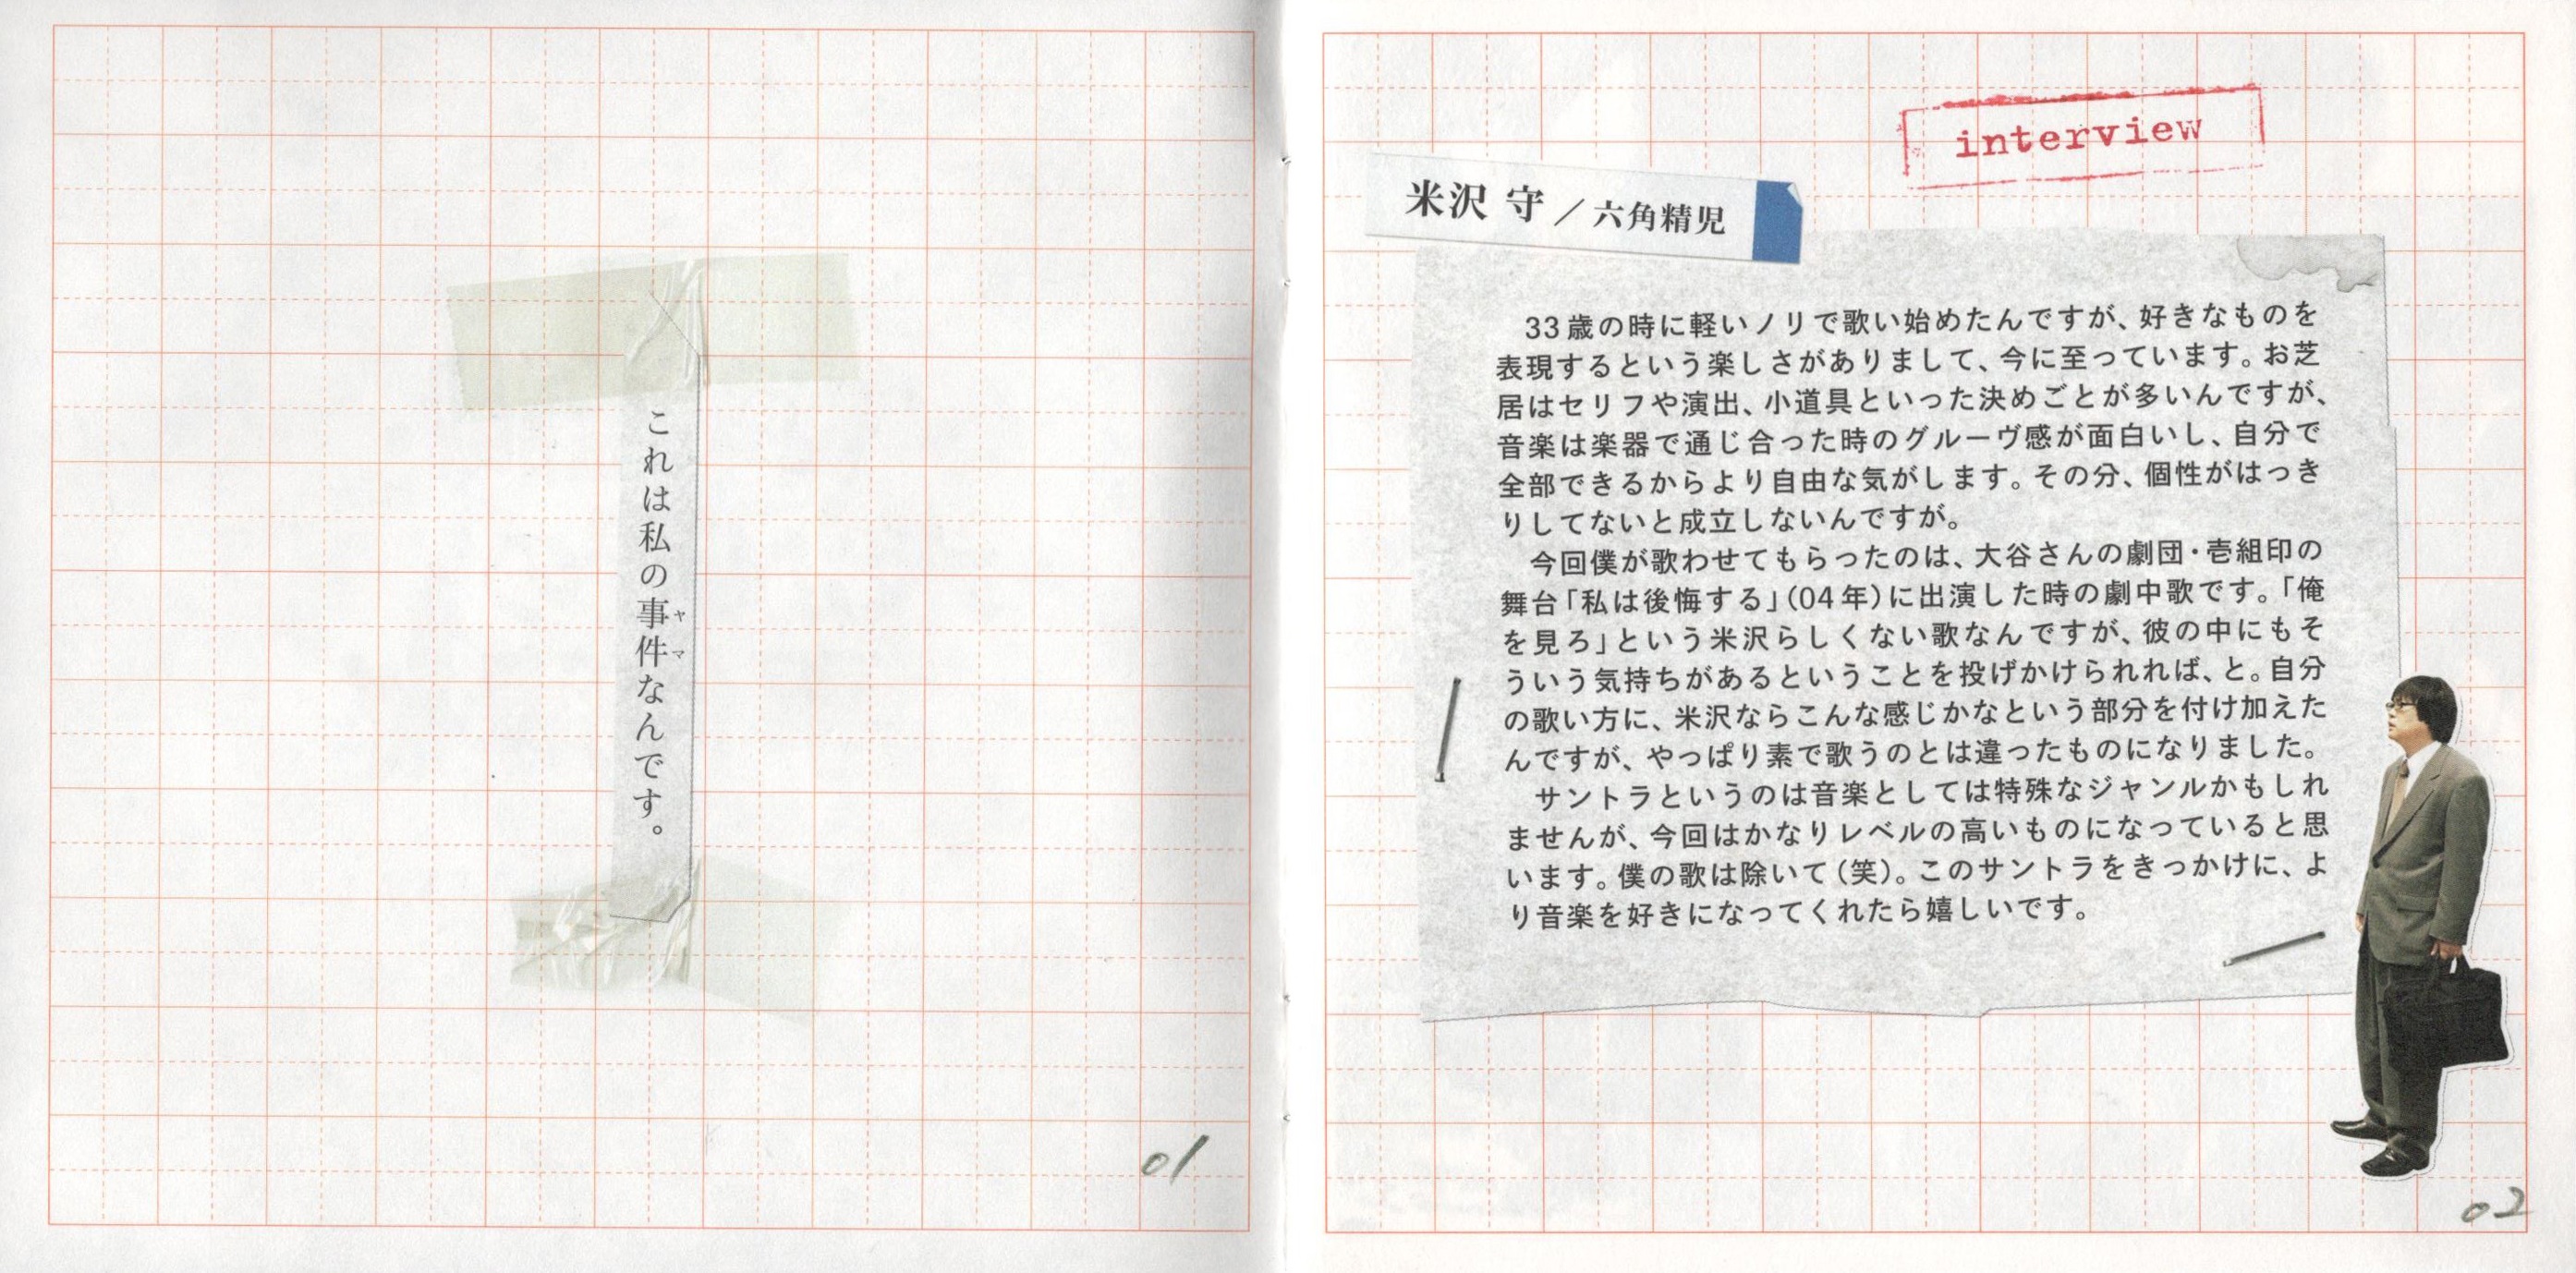 これは私の事件なんです。
ヤマ
01
interview
米沢 守／六角精児
33歳の時に軽いノリで歌い始めたんですが、好きなものを
表現するという楽しさがありまして、今に至っています。お芝
居はセリフや演出、小道具といった決めごとが多いんですが、
音楽は楽器で通じ合った時のグルーヴ感が面白いし、自分で
全部できるからより自由な気がします。その分、個性がはっき
りしてないと成立しないんですが。
今回僕が歌わせてもらったのは、大谷さんの劇団・壱組印の
舞台「私は後悔する」（04年）に出演した時の劇中歌です。「俺
を見ろ」という米沢らしくない歌なんですが、彼の中にもそ
ういう気持ちがあるということを投げかけられれば、と。自分
の歌い方に、米沢ならこんな感じかなという部分を付け加えた
んですが、やっぱり素で歌うのとは違ったものになりました。
サントラというのは音楽としては特殊なジャンルかもしれ
ませんが、今回はかなりレベルの高いものになっていると思
います。僕の歌は除いて（笑）。このサントラをきっかけに、よ
り音楽を好きになってくれたら嬉しいです。
02